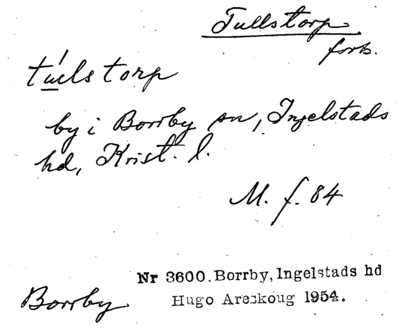 Tullstorp
forts.
túelstorp
by i Borrby sn, Ingelstads
hd, Krist. l.
M. f. 84
Nr 3600. Borrby, Ingelstads hd
Borrby
Hugo Areskoug 1954.